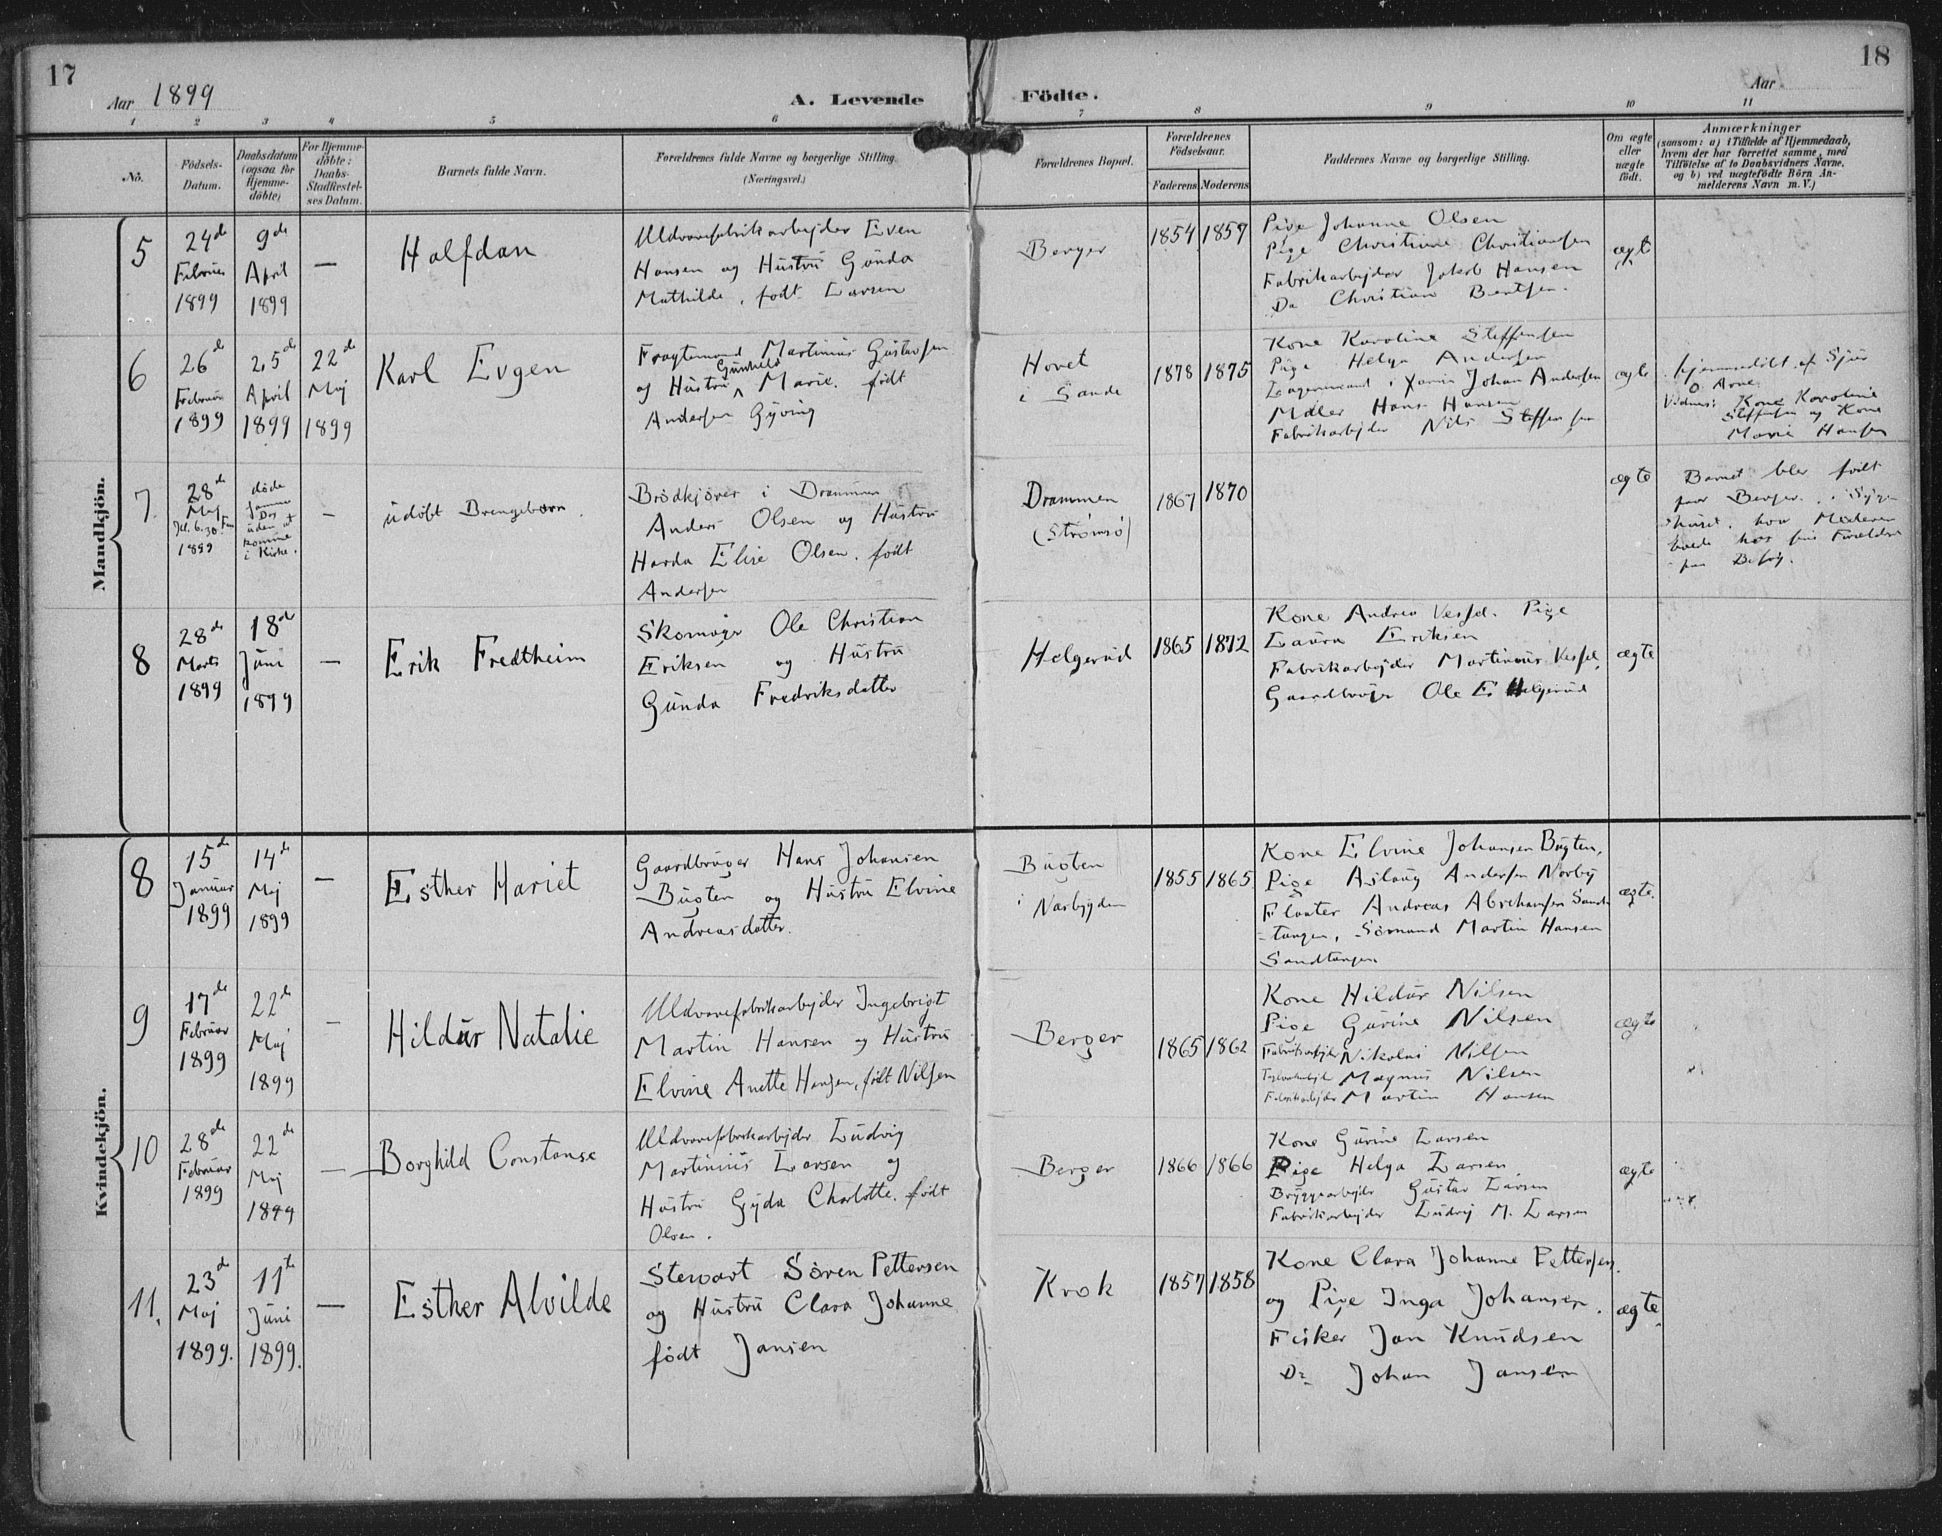 17
18
Aar 1899
A. Levende
Födte.
Aar
1 2 3 4 5 6 7 8 9 10 11
No.
Födsels-
Datum.
Daabsdatum
(ogsaa for
Hjemme-
döbte)
For Hjemme-
döbte:
Daabs-
Stadfæstel-
ses Datum.
Barnets fulde Navn.
Forældrenes fulde Navne og borgerlige Stilling.
(Næringsvei.)
Forældrenes Bopæl.
Forældrenes
Fødselsaar.
Faderens
Moderens
Faddernes Navne og borgerlige Stilling.
Om ægte
eller
uægte
födt.
Anmærkninger
(saasom: a) i Tilfælde af Hjemmedaab,
hvem der har forrettet samme, med
Tilföielse af to Daabsvidners Navne,
og b) ved uægtefödte Börn An-
melderens Navn m. V.)
Mandkjön.
5
24de
Februar
1899
9de
April
1899
—
Halfdan
Uldvarefabrikarbejder Even
Hansen og Hustru Gunda
Mathilde, født Larsen
Berger
1854
1857
Pige Johanne Olsen
Pige Christine Christiansen
Fabrikarbejder Jakob Hansen
Do Christian Bentsen.
ægte
6
26de
Februar
1899
25de
April
1899
22de
Maj
1899
Karl Evgen
Fragtemand Martinius Gustavsen
og Hustru Gunhild Marie. født
Andersen Gyving
Hovet
i Sande
1878
1875
Kone Karoline Steffensen
Pige Helga Andersen
Lagermand i Johan Andersen
Møller Hans Hansen
Fabrikarbejder Nils Steffensen
ægte
hjemmedøbt af Sjur
O. Arne.
Vidner: Kone Karoline
Steffensen og Kone
Marie Hansen
7.
28de
Maj
Kl. 6.30 Fm
1899
døde
samme
Dag
uden at
komme
i Kirke.
—
udøbt Drengebarn.
Brødkjører i Drammen
Anders Olsen og Hustru
Harda Elise Olsen. født
Andersen
Drammen
(Strømsø)
1867
1870
ægte
Barnet blev født
paa Berger. i Syge-
huset. hvor Moderen
havde hos sine Forældre
paa Besøg.
8
28de
Marts
1899
18de
Juni
1899
—
Erik Fredtheim
Skomager Ole Christian
Eriksen og Hustru
Gunda Fredriksdatter
Helgerud
1865
1872
Kone Andrea Vessel. Pige
Laura Eriksen
Fabrikarbejder Martinius Vessel.
Gaardbruger Ole E. Helgerud
ægte
Kvindekjön.
8
15de
Januar
1899
14de
Maj
1899
—
Esther Hariet
Gaardbruger Hans Johansen
Bugten og Hustru Elvine
Andreasdatter.
Bugten
i Nærbygden
1855
1865
Kone Elvine Johansen Bugten,
Pige Aslaug Andersen Nordby
Fløater Andreas Abrahamsen Sand-
tangen, Sømand Martin Hansen
Sandtangen
ægte.
9
17de
Februar
1899
22de
Maj
1899
—
Hildur Natalie
Uldvarefabrikarbejder Ingebrigt
Martin Hansen og Hustru
Elvine Anette Hansen, født Nilsen
Berger
1865
1862
Kone Hildur Nilsen
Pige Gurine Nilsen
Fabrikarbejder Nikolai Nilsen
Magnus Nilsen
Fabrikarbejder Martin Hansen
ægte
10
28de
Februar
1899
22de
Maj
1899
—
Borghild Constanse
Uldvarefabrikarbejder Ludvig
Martinius Larsen og
Hustru Gyda Charlotte. født
Olsen.
Berger
1866
1866
Kone Gurine Larsen
Pige Helga Larsen
Bryggearbejder Gustav Larsen
Fabrikarbejder Ludvig M. Larsen
ægte
11.
23de
Maj
1899.
11te
Juni
1899.
—
Esther Alvilde
Stewart Sören Pettersen
og Hustru Clara Johanne
født Jansen
Krok
1857
1858
Kone Clara Johanne Pettersen.
og Pige Inga Johansen.
Fisker Jan Knudsen
Do Johan Jansen
ægte.